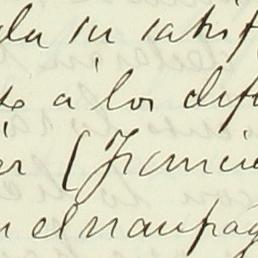 da su satisf
s a los dif
er (Francis
n el naufrag